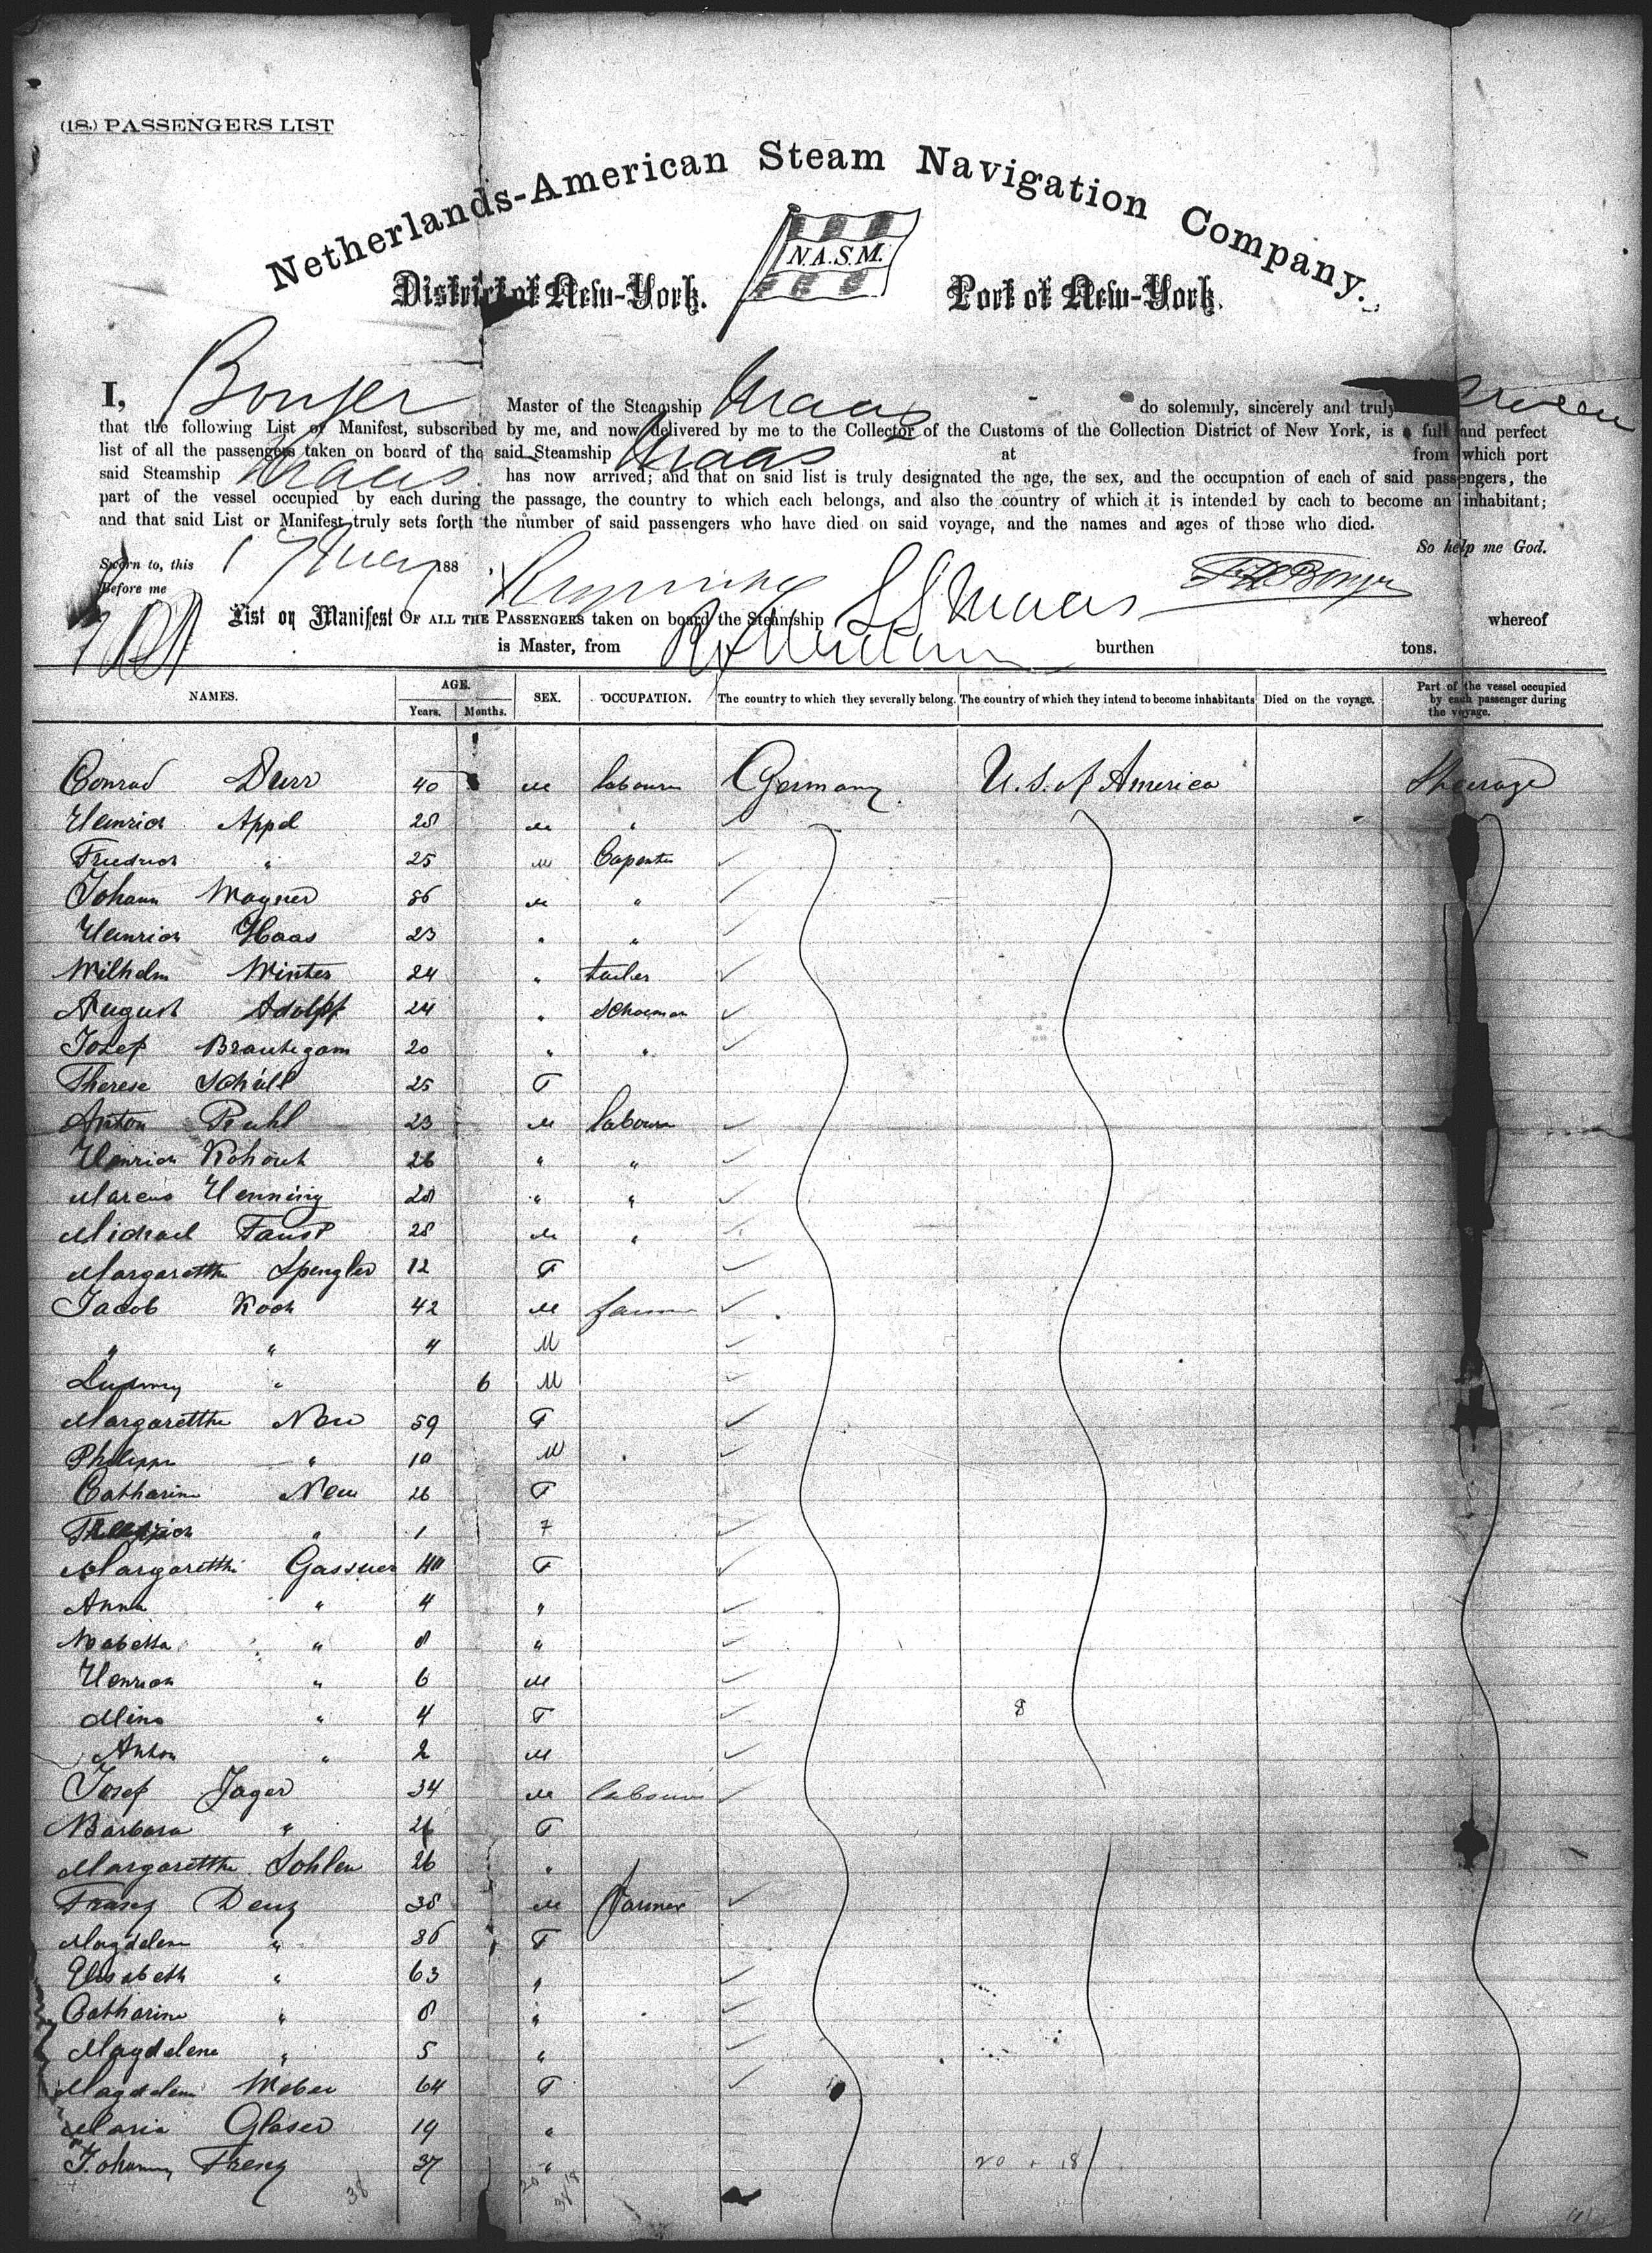 (18) PASSENGERS LIST
Netherlands-American Steam Navigation Company.
N.A.S.M.
District of New-York. Port of New-York.
I, Bonjer Master of the Steamship Maas do solemnly, sincerely and truly
that the following List or Manifest, subscribed by me, and now delivered by me to the Collector of the Customs of the Collection District of New York, is a full and perfect
list of all the passengers taken on board of the said Steamship Maas at from which port
said Steamship Maas has now arrived; and that on said list is truly designated the age, the sex, and the occupation of each of said passengers, the
part of the vessel occupied by each during the passage, the country to which each belongs, and also the country of which it is intended by each to become an inhabitant;
and that said List or Manifest truly sets forth the number of said passengers who have died on said voyage, and the names and ages of those who died.
So help me God.
Sworn to, this 17 May 188
Before me
List or Manifest OF ALL THE PASSENGERS taken on board the Steamship SS Maas whereof
is Master, from Rotterdam burthen tons.
NAMES. AGE. Years. Months. SEX. OCCUPATION. The country to which they severally belong. The country of which they intend to become inhabitants Died on the voyage. Part of the vessel occupied by each passenger during the voyage.
Conrad Durr 40 M labourer Germany U. S. of America Steerage
Heinrich Appel 28 M "
Friedrich " 25 M Capenter
Johann Wagner 36 M "
Heinrich Haas 23 " "
Wilhelm Winter 24 " tailer
August Adolff 24 " Schoeman
Josef Brautigam 20 " "
Therese Schüll 25 F
Anton Ruhl 23 M labourer
Heinrich Kohout 26 " "
Marcus Henning 28 " "
Michael Faust 28 M "
Margaretthe Spengler 12 F
Jacob Koch 42 M farmer
" " 4 M
Ludwig " 6 M
Margaretthe New 59 F
Philipp " 10 M
Catharine New 26 F
" 1 F
Margaretthe Gassner 40 F
Anna " 4 "
" 8 "
Henrich " 6 M
Mina " 4 F
Anton " 2 M
Josef Jager 34 M labourer
Barbara " 26 F
Margaretthe Sohlen 26 "
Franz Denz 38 M farmer
Magdelene " 36 F
Elisabeth " 63 "
Catharine " 8 "
Magdelene " 5 "
Magdelene Weber 64 F
Maria Glaser 19 "
Johanny Frenz 37 "
38 20 18 38 20 + 18